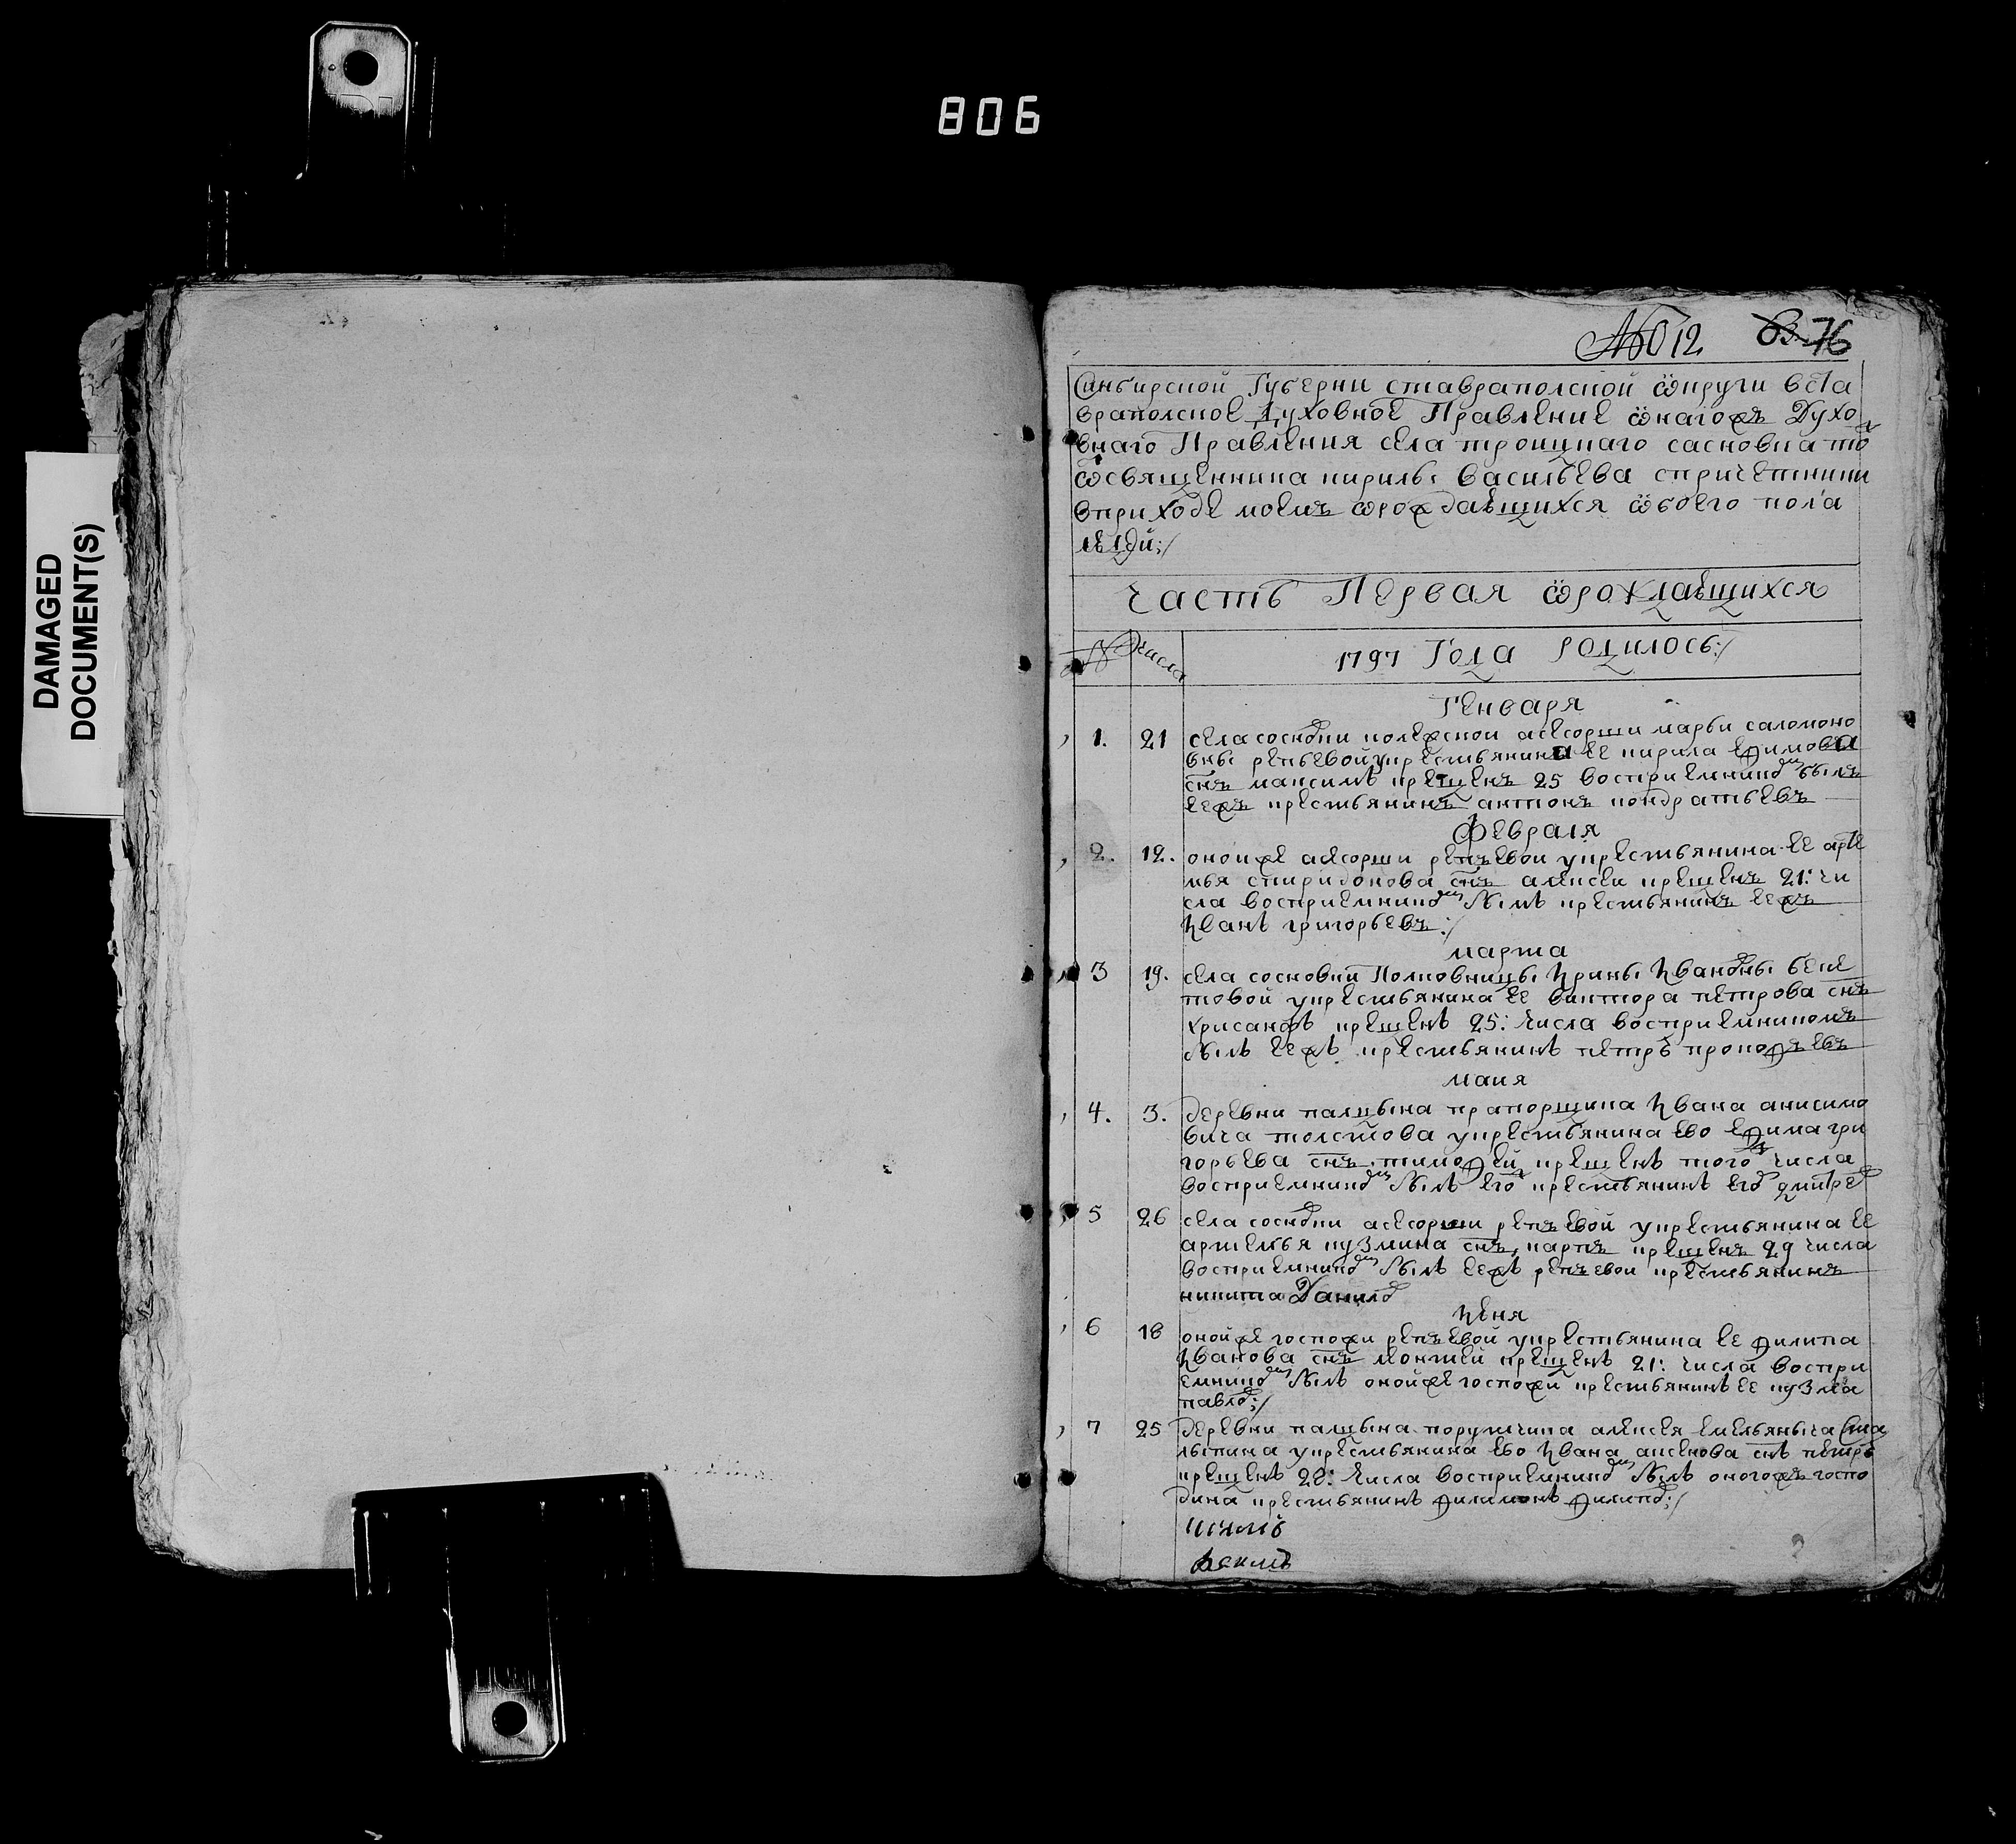 806
DAMAGED
DOCUMENT(S)
№ 12 63 76
Синбирской Губерни ставраполской ѿкруги вста
враполское Духовное Правление ѿнагожъ Духо
внаго Правления села троицкаго сасновка тож
ѿсвященника кирилы васильева спричетники
вприходе моемъ ѿрождавшихся ѿбоего пола
людй:/
Часть Первая ѿрождавшихся
№ числа 1797 Года родилось:/
Генваря
1. 21 села сосновки асесорши марьи саломоно
вны репьевой укрестьянина ее кирила ефимова
снъ максимъ крещенъ 25 восприемником былъ
ееже крестьянинъ антонъ кондратьевъ
февраля
2. 12. оноиже асесорши репьевои укрестьянина ее арте
мья спиридонова снъ алексеи крещенъ 21: чи
сла восприемником былъ крестьянинъ ееже
иванъ григорьевъ:/
марта
3 19. села сосновки Полковницы ирины ивановны беке
товой укрестьянина ее виктора петрова снъ
хрисанфъ крещенъ 25: числа восприемникомъ
былъ еежъ крестьянинъ петръ прокофьевъ
маия
4. 3. деревни палцына прапорщика ивана анисимо
вича толстова укрестьянина ево ефима гри
горьева снъ тимофей крещенъ того ж числа
восприемником былъ его ж крестьянинъ
5 26 села сосновки асесорши репьевой укрестьянина ее
артемья кузмина снъ карпъ крещенъ 29 числа
восприемником былъ еежъ репьевои крестьянинъ
никита Данилов
июня
6 18 оной же госпожи репьевой укрестьянина ее филипа
иванова снъ крещенъ 21: числа воспри
емником былъ оной же госпожи крестьянинъ ее кузма
павлов:/
7 25 деревни палцына порутчика алексея емельяныча
укрестьянина ево ивана аксенова снъ петръ
крещенъ 28: числа восприемником былъ оногожъ госпо
дина крестьянинъ филимонъ филипов:/